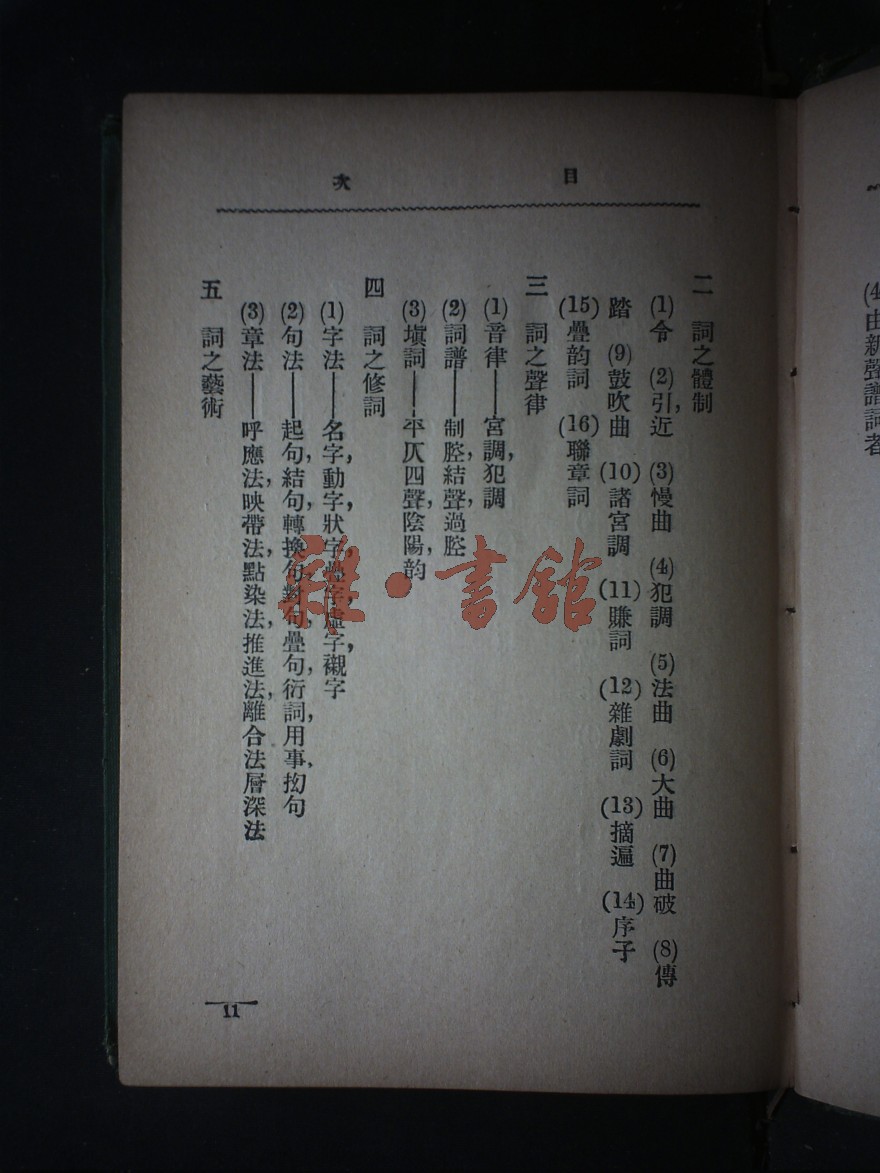 “
(4)由新聲譜詞者
目次
二 詞之體制
(1)令 (2)引,近 (3)慢曲 (4)犯調 (5)法曲 (6)大曲 (7)曲破 (8)傳
踏 (9)鼓吹曲 (10)諸宮調 (11)賺詞 (12)雜劇詞 (13)摘遍 (14)序子
(15)疊韵詞 (16)聯章詞
三 詞之聲律
(1)音律——宮調,犯調
(2)詞譜——制腔,結聲,過腔
(3)塡詞——平仄四聲,陰陽,韵
四 詞之修詞
(1)字法——名字,動字,狀字,疊字,虛字,襯字
(2)句法——起句,結句,轉換句,對句,疊句,衍詞,用事,拗句
(3)章法——呼應法,映帶法,點染法,推進法,離合法層深法
五 詞之藝術
11
雜·書館